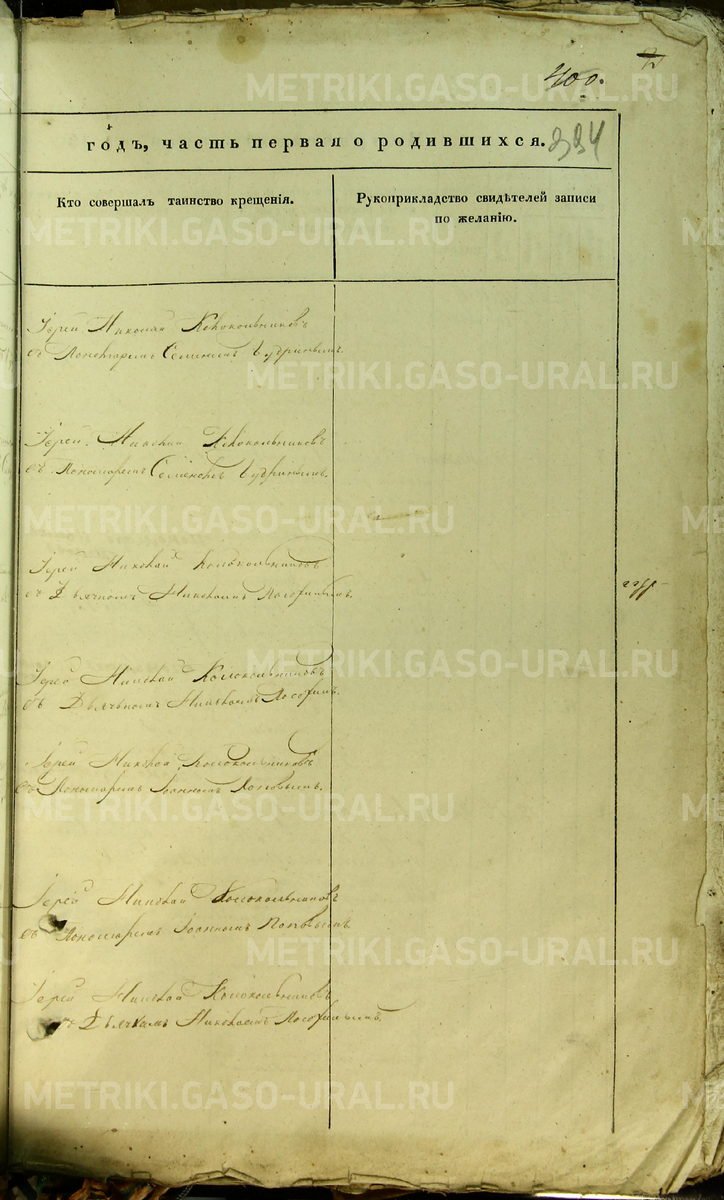 400.
394
годъ, часть первая о родившихся.
Кто совершалъ таинство крещенія.
Рукоприкладство свидѣтелей записи
по желанію.
Іерей Николай Колокольниковъ
съ Пономаремъ Семеномъ
Іерей Николай Колокольниковъ
съ Пономаремъ Семеномъ
Іерей Николай Колокольниковъ
съ Дьячкомъ Николаемъ
Іерей Николай Колокольниковъ
съ Дьячкомъ Николаемъ
Іерей Николай Колокольниковъ
съ Пономаремъ Іоанномъ Поповымъ.
Іерей Николай Колокольниковъ
съ Пономаремъ Іоанномъ Поповымъ
Іерей Николай Колокольниковъ
съ Дьячкомъ Николаемъ
METRIKI.GASO-URAL.RU